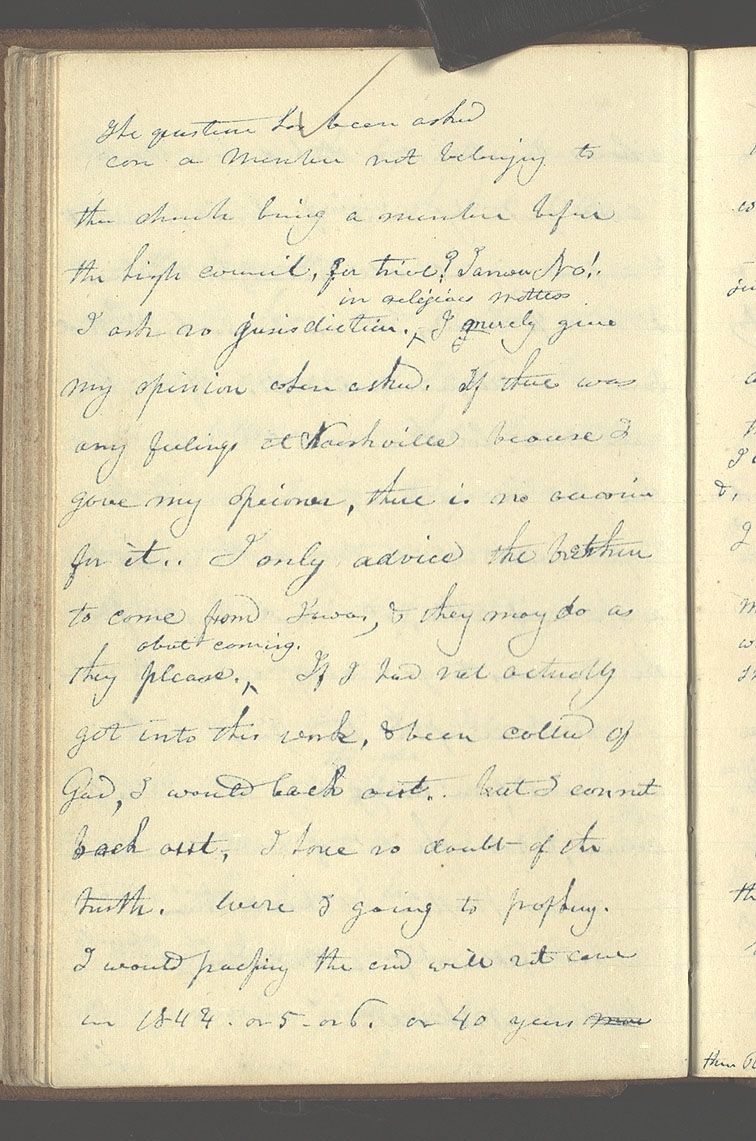 The question has been asked
can a member not belonging to
the church bring a member before
the high council, for trial? I answer No!.
in religious matters
I ask no jurisdiction. ‸ I merely give
my opinion when asked. If there was
any feelings at Nashville because I
gave my opinion, there is no occasion
for it.. I only advice the brethren
to come from Iowa, & they may do as
about coming.
they please. ‸ If I had not actually
got into this work, & been called of
God, I would back out.. but I cannot
back out, I have no doubt of the
truth. were I going to prophesy.
I would prophesy the end will not come
in 1844. or 5. or 6. or 40 years more
w
I
&,
th
then 60